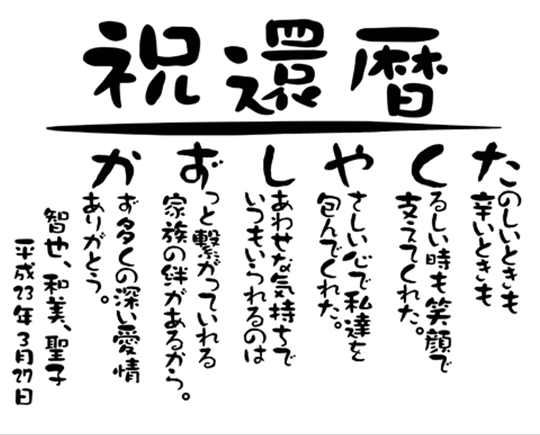 祝還暦
たのしいときも
辛いときも
くるしい時も笑顔で
支えてくれた。
やさしい心で私達を
包んでくれた。
しあわせな気持ちで
いつもいられるのは
ずっと繋がっていれる
家族の絆があるから。
かず多くの深い愛情
ありがとう。
智也、和美、聖子
平成23年3月27日